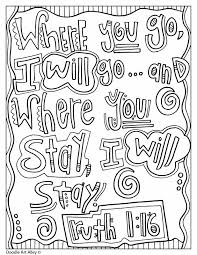 Where you go,
I will go... and
Where you
Stay, I will
Stay.
Ruth 1:16
Doodle Art Alley ©